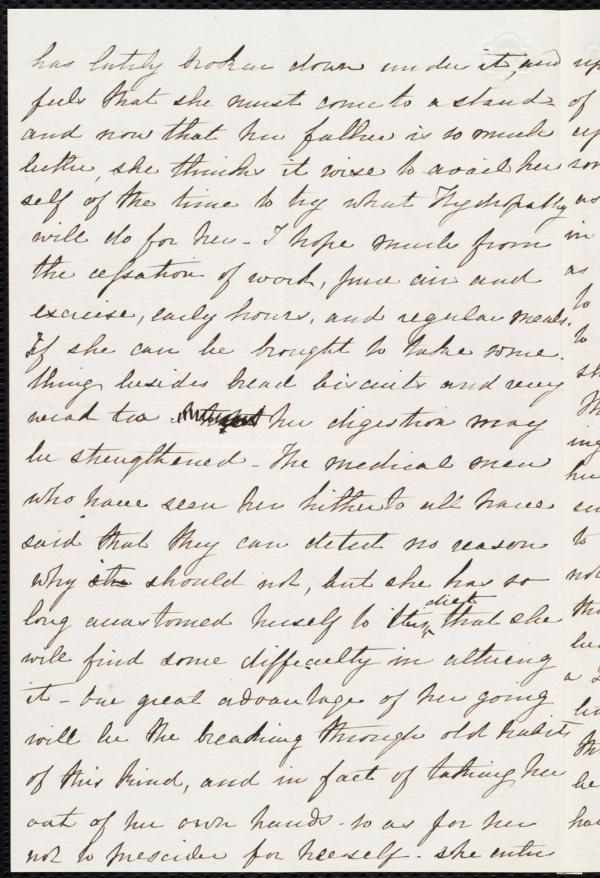 has lately broken down under it, and
feels that she must come to a stand
and now that her father is so much
better, she thinks it wise to avail her
self of the time to try what Hydropathy
will do for her - I hope much from
the cessation of work, pure air and
exercise, early hours, and regular meals.
If she can be brought to take some
thing besides bread biscuits and very
weak tea her digestion may
be strengthened - The medical men
who have seen her hitherto all have
said that they can detect no reason
why she should not, but she has so
diet
long accustomed herself to this, that she
will find some difficulty in altering
it - one great advantage of her going
will be the breaking through old habits
of this kind, and in fact of taking her
out of her own hands - so as for her
not to prescribe for herself - she enters